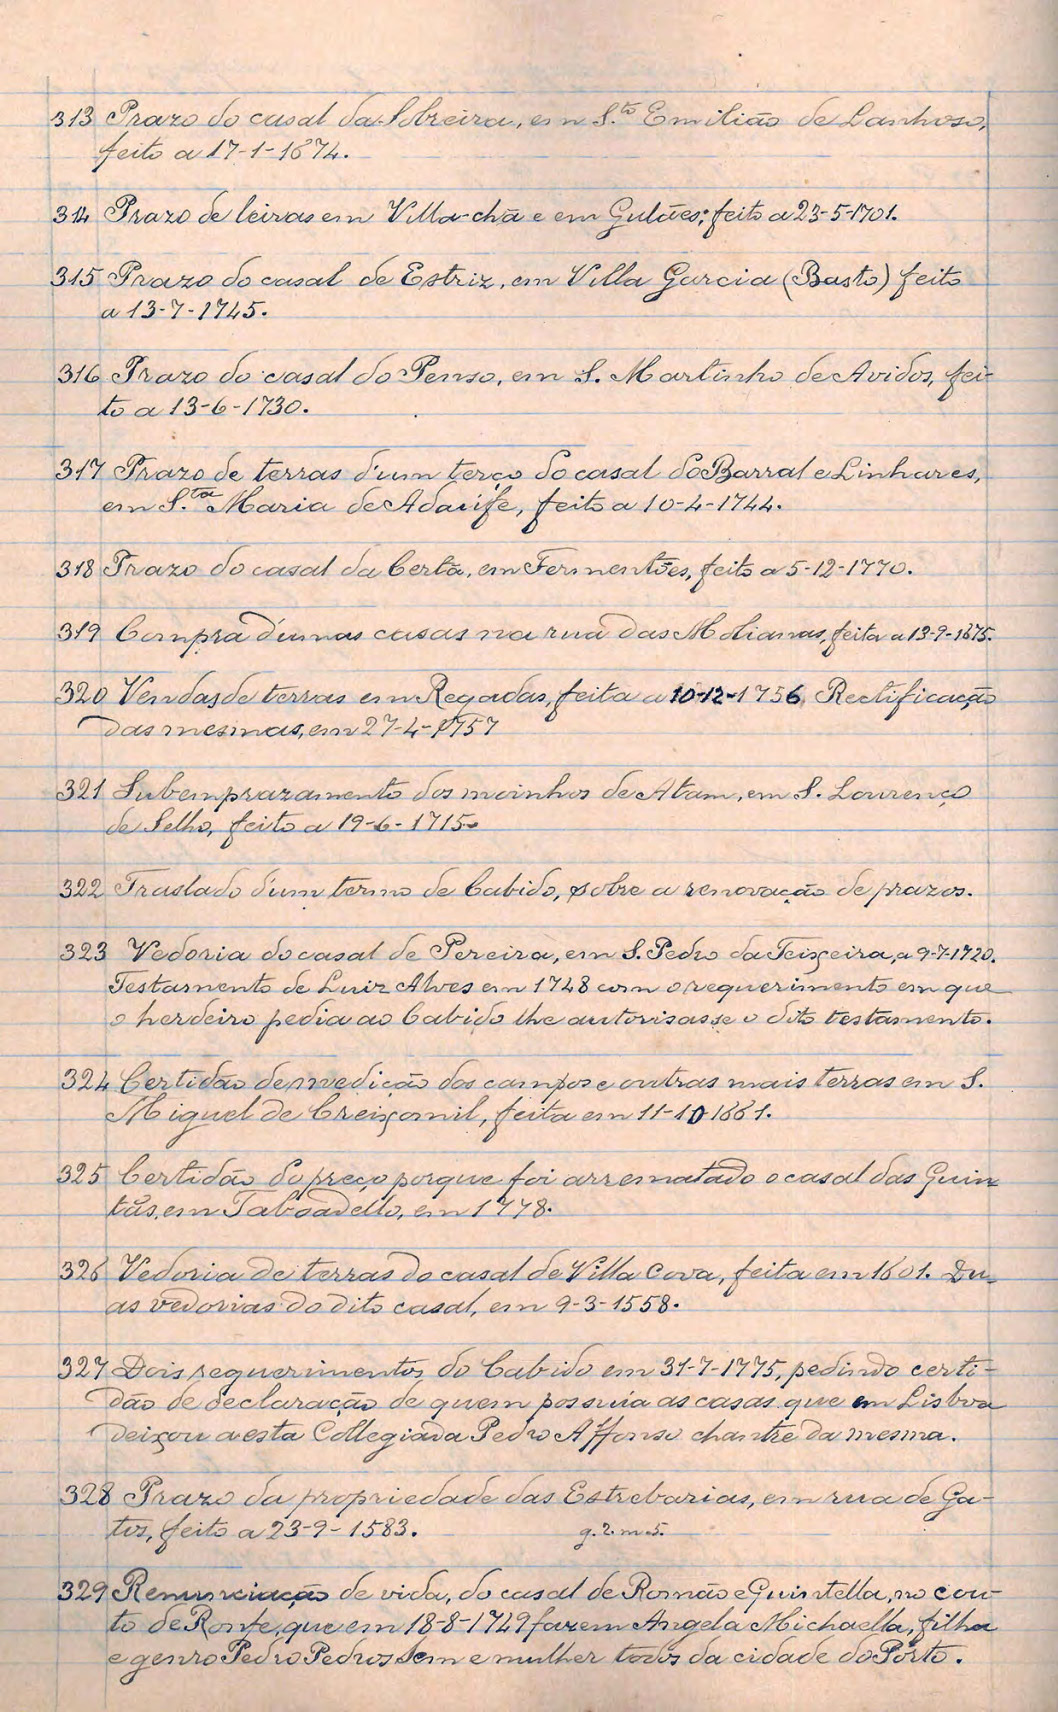 313 Prazo do casal da Sobreira, em S.to Emilião de Lanhoso,
feito a 17-1-1674.
314 Prazo de leiras em Villa-chã e em Gulães; feito a 23-5-1701.
315 Prazo do casal de Estriz, em Villa Garcia (Basto) feito
a 13-7-1745.
316 Prazo do casal do Penso, em S. Martinho de Avidos, fei-
to a 13-6-1730.
317 Prazo de terras d'um terço do casal do Barral e Linhares,
em S.ta Maria de Adaúfe, feito a 10-4-1744.
318 Prazo do casal da Certã, em Fermentões, feito a 5-12-1770.
319 Compra d'umas casas na rua das Molianas, feita a 13-9-1675.
320 Vendas de terras em Regadas, feita a 10-12-1756. Rectificação
das mesmas, em 27-4-1757
321 Subemprazamento dos moinhos de Atam, em S. Lourenço
de Selho, feito a 19-6-1715.
322 Traslado d'um termo de Cabido, sobre a renovação de prazos.
323 Vedoria do casal de Pereira, em S. Pedro da Teixeira, a 9-7-1720.
Testamento de Luiz Alves em 1748 com o requerimento em que
o herdeiro pedia ao Cabido lhe autorisasse o dito testamento.
324 Certidão de medição dos campos e outras mais terras em S.
Miguel de Creixomil, feita em 11-10-1661.
325 Certidão do preço porque foi arrematado o casal das Quin-
tãs, em Taboadello, em 1778.
326 Vedoria de terras do casal de Villa Cova, feita em 1601. Du-
as vedorias do dito casal, em 9-3-1558.
327 Dois requerimentos do Cabido em 31-7-1775, pedindo certi-
dão de declaração de quem possuia as casas que em Lisboa
deixou a esta Collegiada Pedro Affonso chantre da mesma.
328 Prazo da propriedade das Estrebarias, em rua de Ga-
tos, feito a 23-9-1583. g. 2. m. 5.
329 Renunciação de vida, do casal de Romão e Quintella, no cou-
to de Ronfe, que em 18-8-1729 fazem Angela Michaella, filha
e genro Pedro Pedros Sem e mulher todos da cidade do Porto.